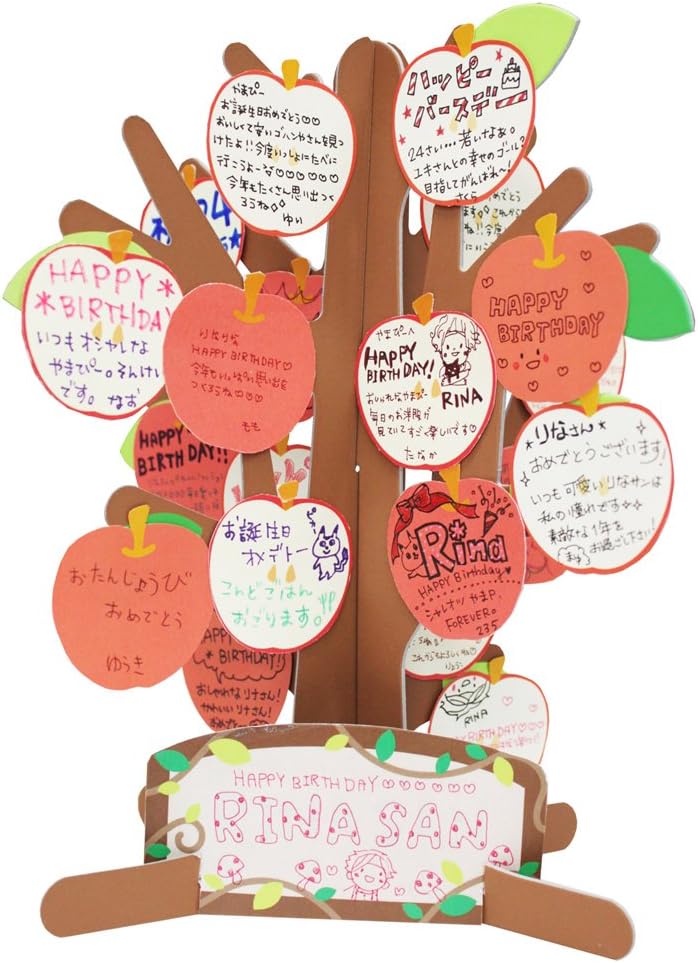 やまぴー
お誕生日おめでとう♡♡
おいしくて安いゴハンやさんを見つ
けたよ!!今度いっしょにたべに
行こうよ〜♡♡♡♡♡♡
今年もたくさん思い出つく
ろうね◇◇
ゆい
ハッピー
バースデー
24さい…若いなぁ。
ユキさんとの幸せのゴール?
目指してがんばれ〜!
HAPPY
BIRTHDAY
いつもオシャレな
やまぴー。そんけい
です。なお
りなりな
HAPPY BIRTHDAY♡
今年もいっぱい思い出を
つくろうね♡♡♡
もも
やまぴーへ
HAPPY
BIRTHDAY!
RINA
おしゃれなやまぴー
毎日のお洋服が
見ていてすごく楽しいです♡
たなか
HAPPY
BIRTHDAY
りなさん
おめでとうございます!
いつも可愛いりなサンは
私の憧れです
素敵な1年を
お過ごし下さい!
HAPPY
BIRTHDAY!!
お誕生日
オメデトー
こんどごはん
おごります。
Rina
HAPPY Birthday
シャレオツ やまP.
FOREVER。
235
おたんじょうび
おめでとう
ゆうき
HAPPY
BIRTHDAY!
おしゃれなリナさん!
かわいいリナさん!
これからもよろしくね
りょう
RINA
HAPPY BIRTHDAY♡♡♡♡♡♡
RINA SAN